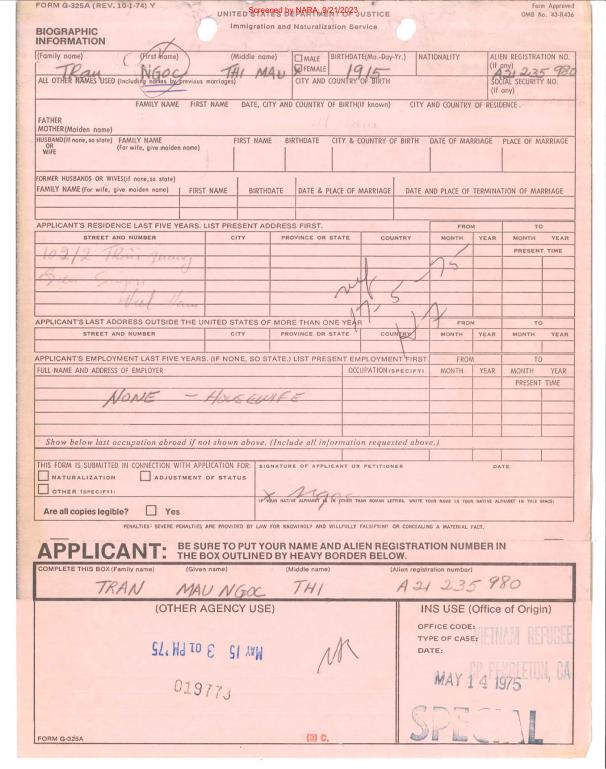 FORM G-325A (REV. 10-1-74) Y
Screened by NARA, 9/21/2023
Form Approved
OMB No. 43-R436
UNITED STATES DEPARTMENT OF JUSTICE
Immigration and Naturalization Service
BIOGRAPHIC
INFORMATION
(Family name) (First name) (Middle name) MALE FEMALE BIRTHDATE(Mo.-Day-Yr.) NATIONALITY ALIEN REGISTRATION NO. (If any)
Tran NGOC THI MAU X 1915 A21 235 980
ALL OTHER NAMES USED (Including names by previous marriages) CITY AND COUNTRY OF BIRTH SOCIAL SECURITY NO. (If any)
FAMILY NAME FIRST NAME DATE, CITY AND COUNTRY OF BIRTH(If known) CITY AND COUNTRY OF RESIDENCE.
FATHER
MOTHER(Maiden name)
HUSBAND(If none, so state) OR WIFE FAMILY NAME (For wife, give maiden name) FIRST NAME BIRTHDATE CITY & COUNTRY OF BIRTH DATE OF MARRIAGE PLACE OF MARRIAGE
FORMER HUSBANDS OR WIVES(if none, so state)
FAMILY NAME (For wife, give maiden name) FIRST NAME BIRTHDATE DATE & PLACE OF MARRIAGE DATE AND PLACE OF TERMINATION OF MARRIAGE
APPLICANT'S RESIDENCE LAST FIVE YEARS. LIST PRESENT ADDRESS FIRST. FROM TO
STREET AND NUMBER CITY PROVINCE OR STATE COUNTRY MONTH YEAR MONTH YEAR
PRESENT TIME
102/2
Viet Nam
17-5-75
H7
APPLICANT'S LAST ADDRESS OUTSIDE THE UNITED STATES OF MORE THAN ONE YEAR FROM TO
STREET AND NUMBER CITY PROVINCE OR STATE COUNTRY MONTH YEAR MONTH YEAR
APPLICANT'S EMPLOYMENT LAST FIVE YEARS. (IF NONE, SO STATE.) LIST PRESENT EMPLOYMENT FIRST FROM TO
FULL NAME AND ADDRESS OF EMPLOYER OCCUPATION (SPECIFY) MONTH YEAR MONTH YEAR
PRESENT TIME
NONE - HOUSEWIFE
Show below last occupation abroad if not shown above. (Include all information requested above.)
THIS FORM IS SUBMITTED IN CONNECTION WITH APPLICATION FOR: SIGNATURE OF APPLICANT OR PETITIONER DATE
NATURALIZATION ADJUSTMENT OF STATUS
OTHER (SPECIFY):
x Ngoc
IF YOUR NATIVE ALPHABET IS IN OTHER THAN ROMAN LETTERS, WRITE YOUR NAME IN YOUR NATIVE ALPHABET IN THIS SPACE:
Are all copies legible? Yes
PENALTIES: SEVERE PENALTIES ARE PROVIDED BY LAW FOR KNOWINGLY AND WILLFULLY FALSIFYING OR CONCEALING A MATERIAL FACT.
APPLICANT: BE SURE TO PUT YOUR NAME AND ALIEN REGISTRATION NUMBER IN
THE BOX OUTLINED BY HEAVY BORDER BELOW.
COMPLETE THIS BOX (Family name) (Given name) (Middle name) (Alien registration number)
TRAN MAU NGOC THI A 21 235 980
(OTHER AGENCY USE) INS USE (Office of Origin)
OFFICE CODE:
TYPE OF CASE: VIETNAM REFUGEE
DATE:
CP PENDLETON, CA
MAY 14 1975
MAY 15 3 01 PM '75
019773
SPECIAL
FORM G-325A
(3) C.